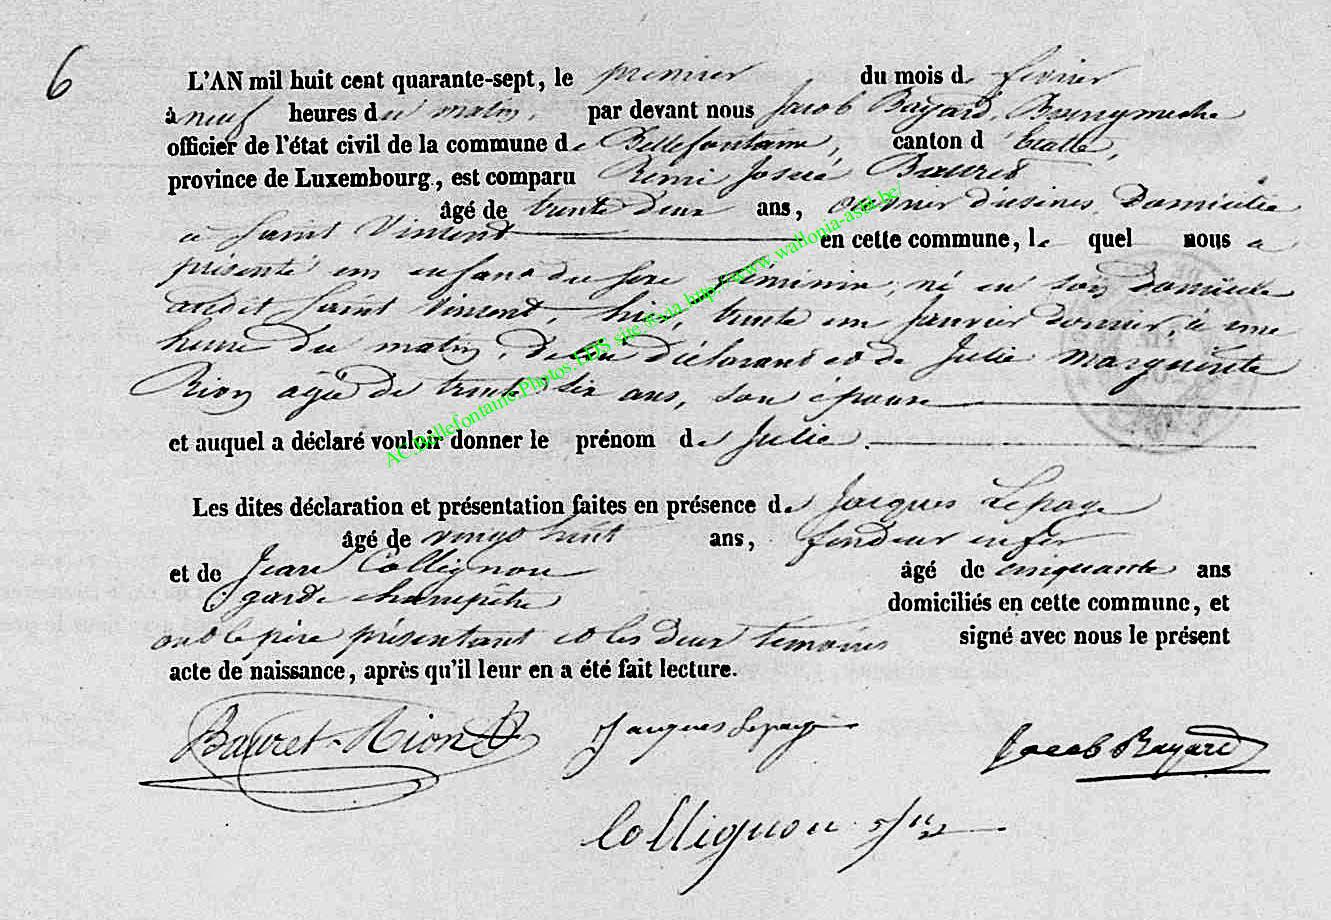 6
L'AN mil huit cent quarante-sept, le premier du mois de février
à neuf heures du matin, par devant nous Jacob Bayard, Bourgmestre
officier de l'état civil de la commune de Bellefontaine, canton d'Etalle,
province de Luxembourg, est comparu Remi Josué Bauret
âgé de trente deux ans, ouvrier d'usines, domicilié
à Saint Vincent en cette commune, lequel nous a
présenté un enfant du sexe féminin, né en son domicile
audit Saint Vincent, hier, trente un Janvier dernier, à une
heure du matin, de lui déclarant et de Julie Marguerite
Rion agée de trente six ans, son épouse
et auquel a déclaré vouloir donner le prénom de Julie.
Les dites déclaration et présentation faites en présence de Jacques Lepage
âgé de vingt huit ans, fondeur en fer
et de Jean Collignon âgé de cinquante ans
garde champêtre domiciliés en cette commune, et
ont le père présentant et les deux témoins signé avec nous le présent
acte de naissance, après qu'il leur en a été fait lecture.
Bauret-Rion Jacques Lepage Jacob Bayard
Collignon
AC Bellefontaine.Photos LDS site fs via http://www.wallonia-asbl.be/